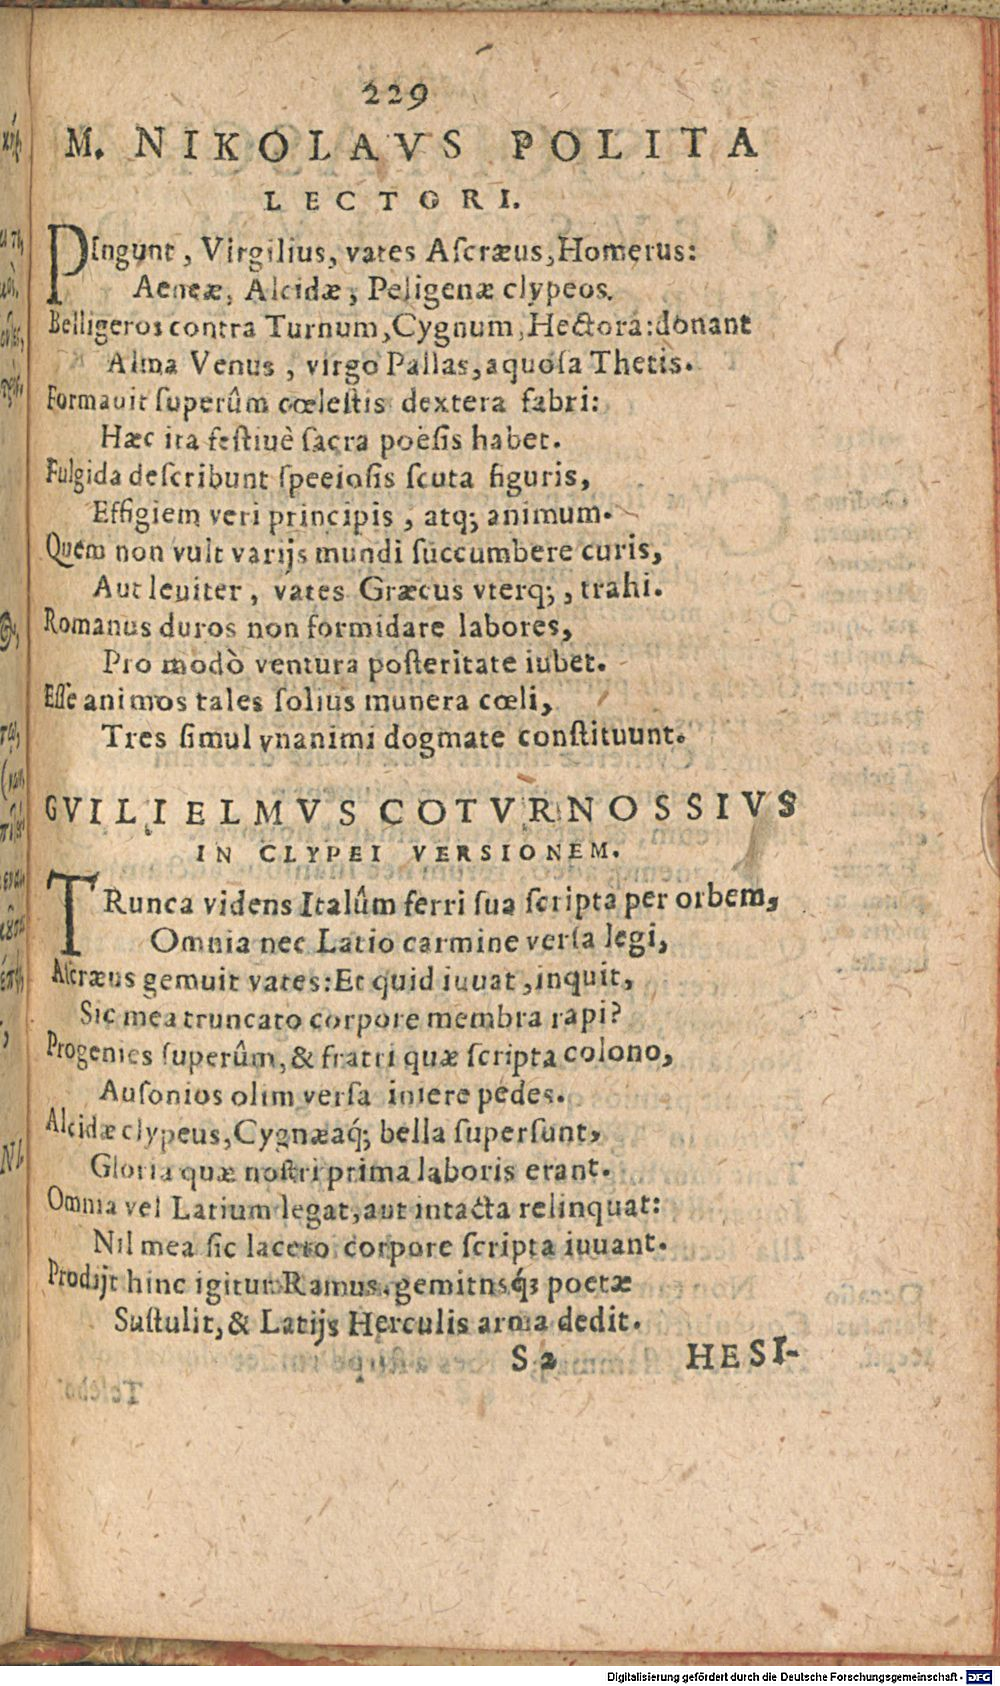 229
M. NIKOLAVS POLITA
LECTORI.
PIngunt, Virgilius, vates Ascræus, Homerus:
Aeneæ, Alcidæ, Peligenæ clypeos.
Belligeros contra Turnum, Cygnum, Hectora: donant
Alma Venus, virgo Pallas, aquosa Thetis.
Formauit superûm cœlestis dextera fabri:
Hæc ita festiuè sacra poësis habet.
Fulgida describunt speciosis scuta figuris,
Effigiem veri principis, atq; animum.
Quem non vult varijs mundi succumbere curis,
Aut leuiter, vates Græcus vterq;, trahi.
Romanus duros non formidare labores,
Pro modò ventura posteritate iubet.
Esse animos tales solius munera cœli,
Tres simul vnanimi dogmate constituunt.
GVILIELMVS COTVRNOSSIVS
IN CLYPEI VERSIONEM.
TRunca videns Italûm ferri sua scripta per orbem,
Omnia nec Latio carmine versa legi,
Ascræus gemuit vates: Et quid iuuat, inquit,
Sic mea truncato corpore membra rapi?
Progenies superûm, & fratri quæ scripta colono,
Ausonios olim versa iniere pedes.
Alcidæ clypeus, Cygnæaq́; bella supersunt,
Gloria quæ nostri prima laboris erant.
Omnia vel Latium legat, aut intacta relinquat:
Nil mea sic lacero corpore scripta iuuant.
Prodijt hinc igitur Ramus, gemitnsq́; poetæ
Sustulit, & Latijs Herculis arma dedit.
S 2 HESI-
Digitalisierung gefördert durch die Deutsche Forschungsgemeinschaft - DFG